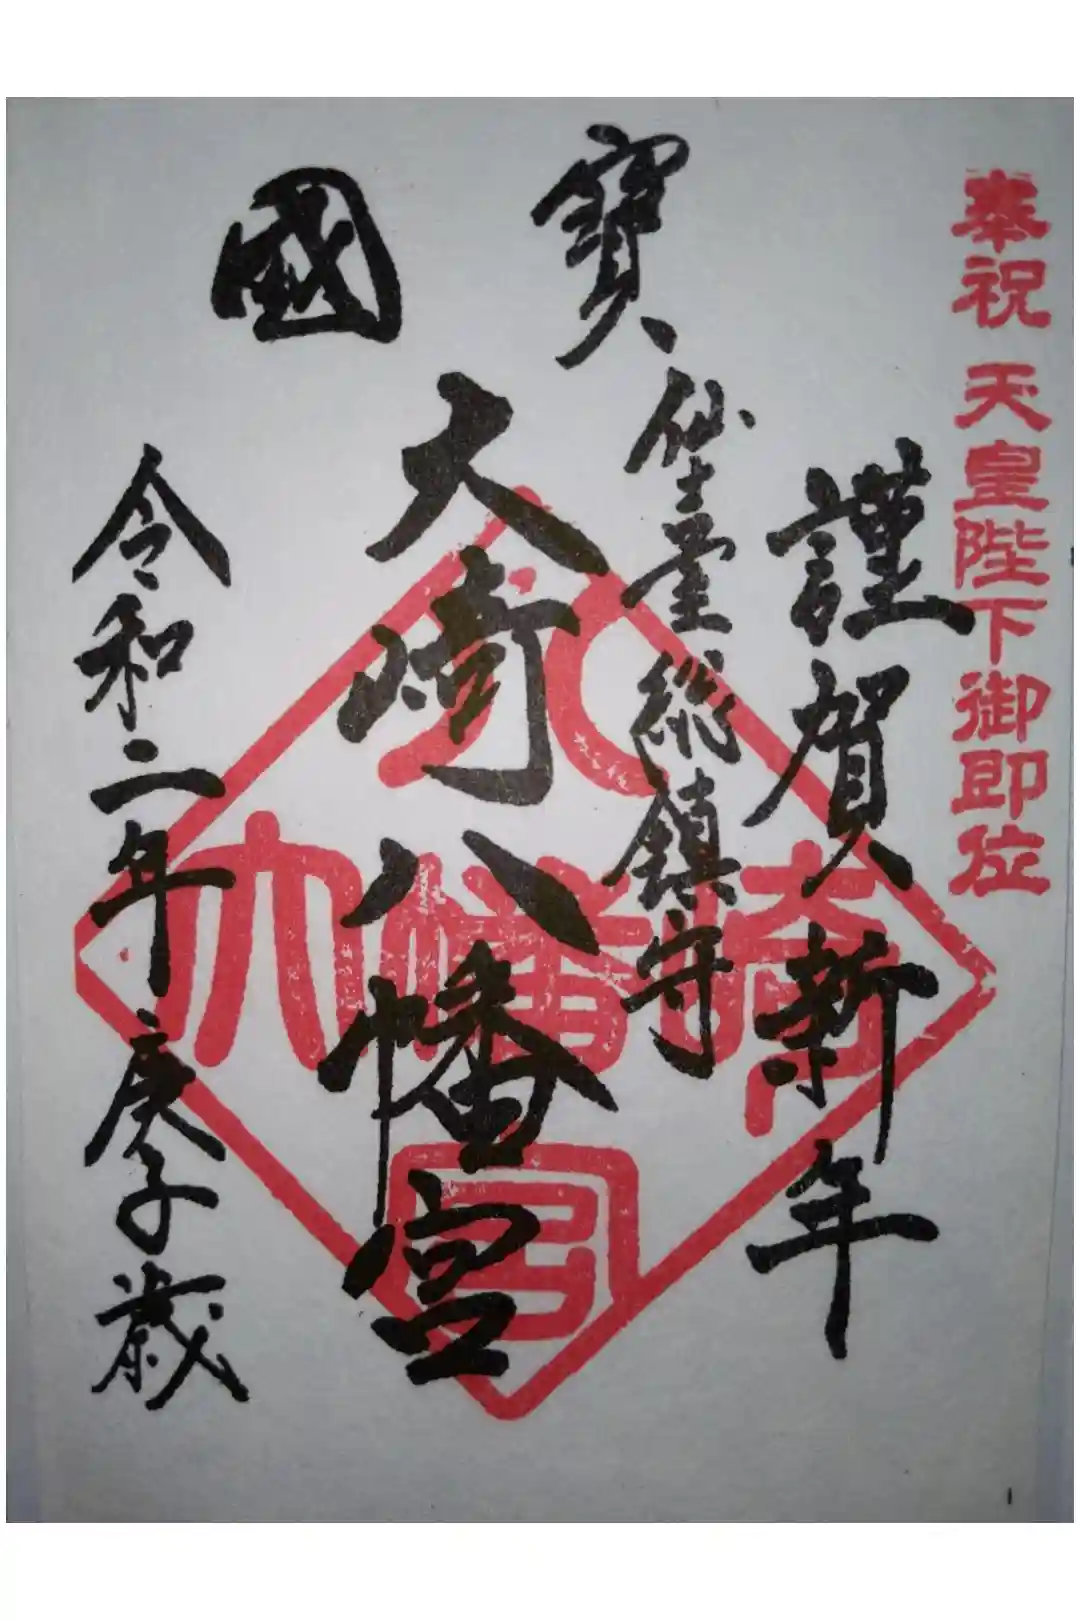 奉祝 天皇陛下御即位
謹賀新年
國寳
仙臺總鎮守
大崎八幡宮
令和二年庚子歳
八
大幡崎
宮